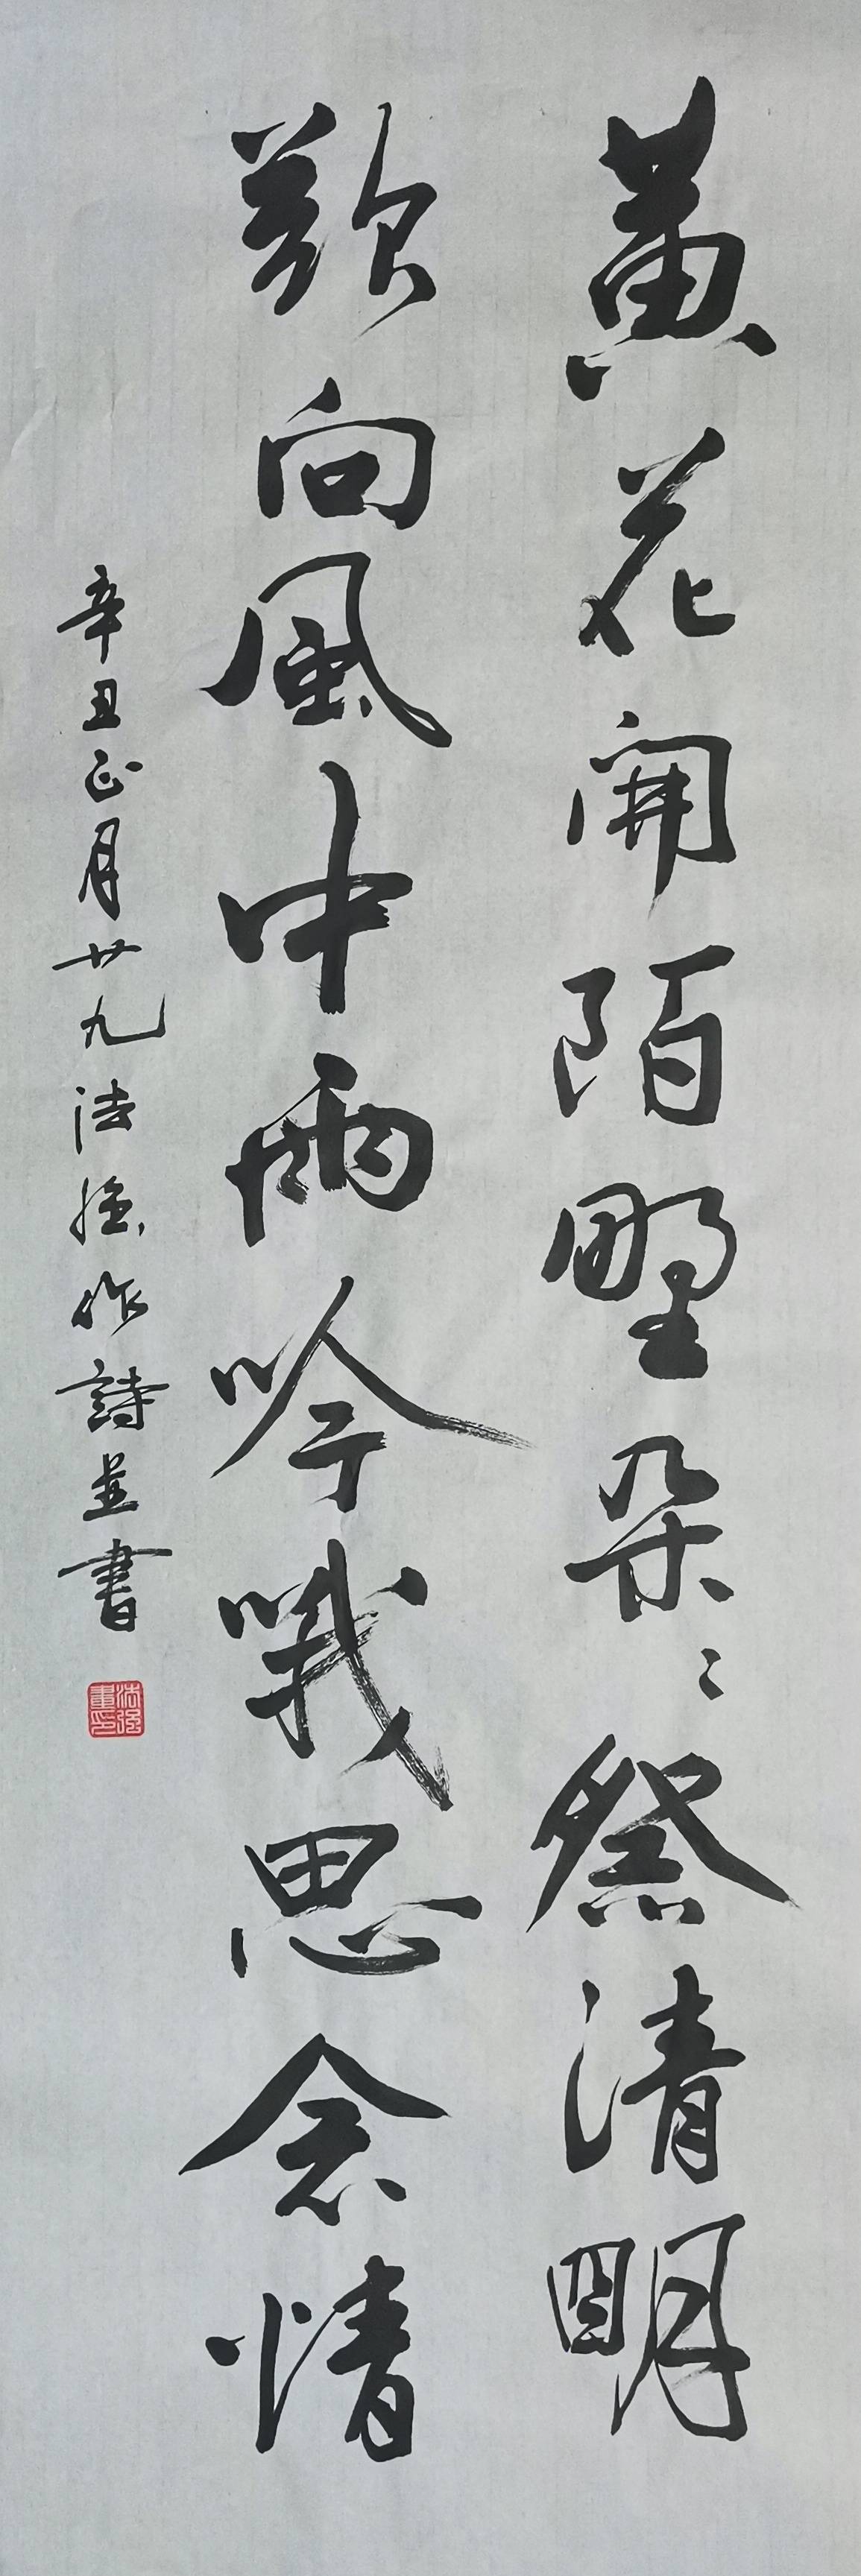 黄花開陌野朵〻祭清明
歎向風中雨吟哦思念情
辛丑正月廿九法強作詩並書